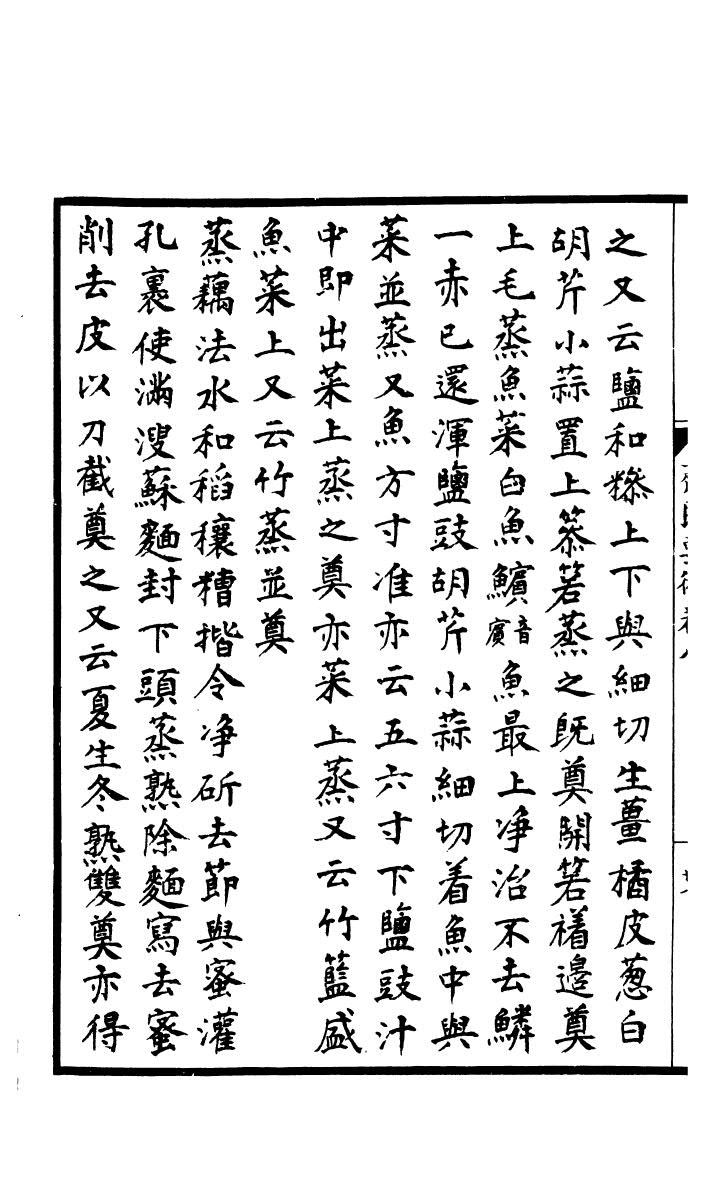 之又云鹽和糝上下與細切生薑橘皮葱白
胡芹小蒜置上篸箬蒸之既奠開箬褚邉奠
上毛蒸魚菜白魚鱝音賔魚最上净治不去鱗
一赤已還渾鹽豉胡芹小蒜細切着魚中與
菜並蒸又魚方寸准亦云五六寸下鹽豉汁
中即出菜上蒸之奠亦菜上蒸又云竹籃盛
魚菜上又云竹蒸並奠
蒸藕法水和稻穰糟揩令净斫去節與蜜灌
孔裏使滿溲蘇麵封下頭蒸熟除麵寫去蜜
削去皮以刀截奠之又云夏生冬熟雙奠亦得